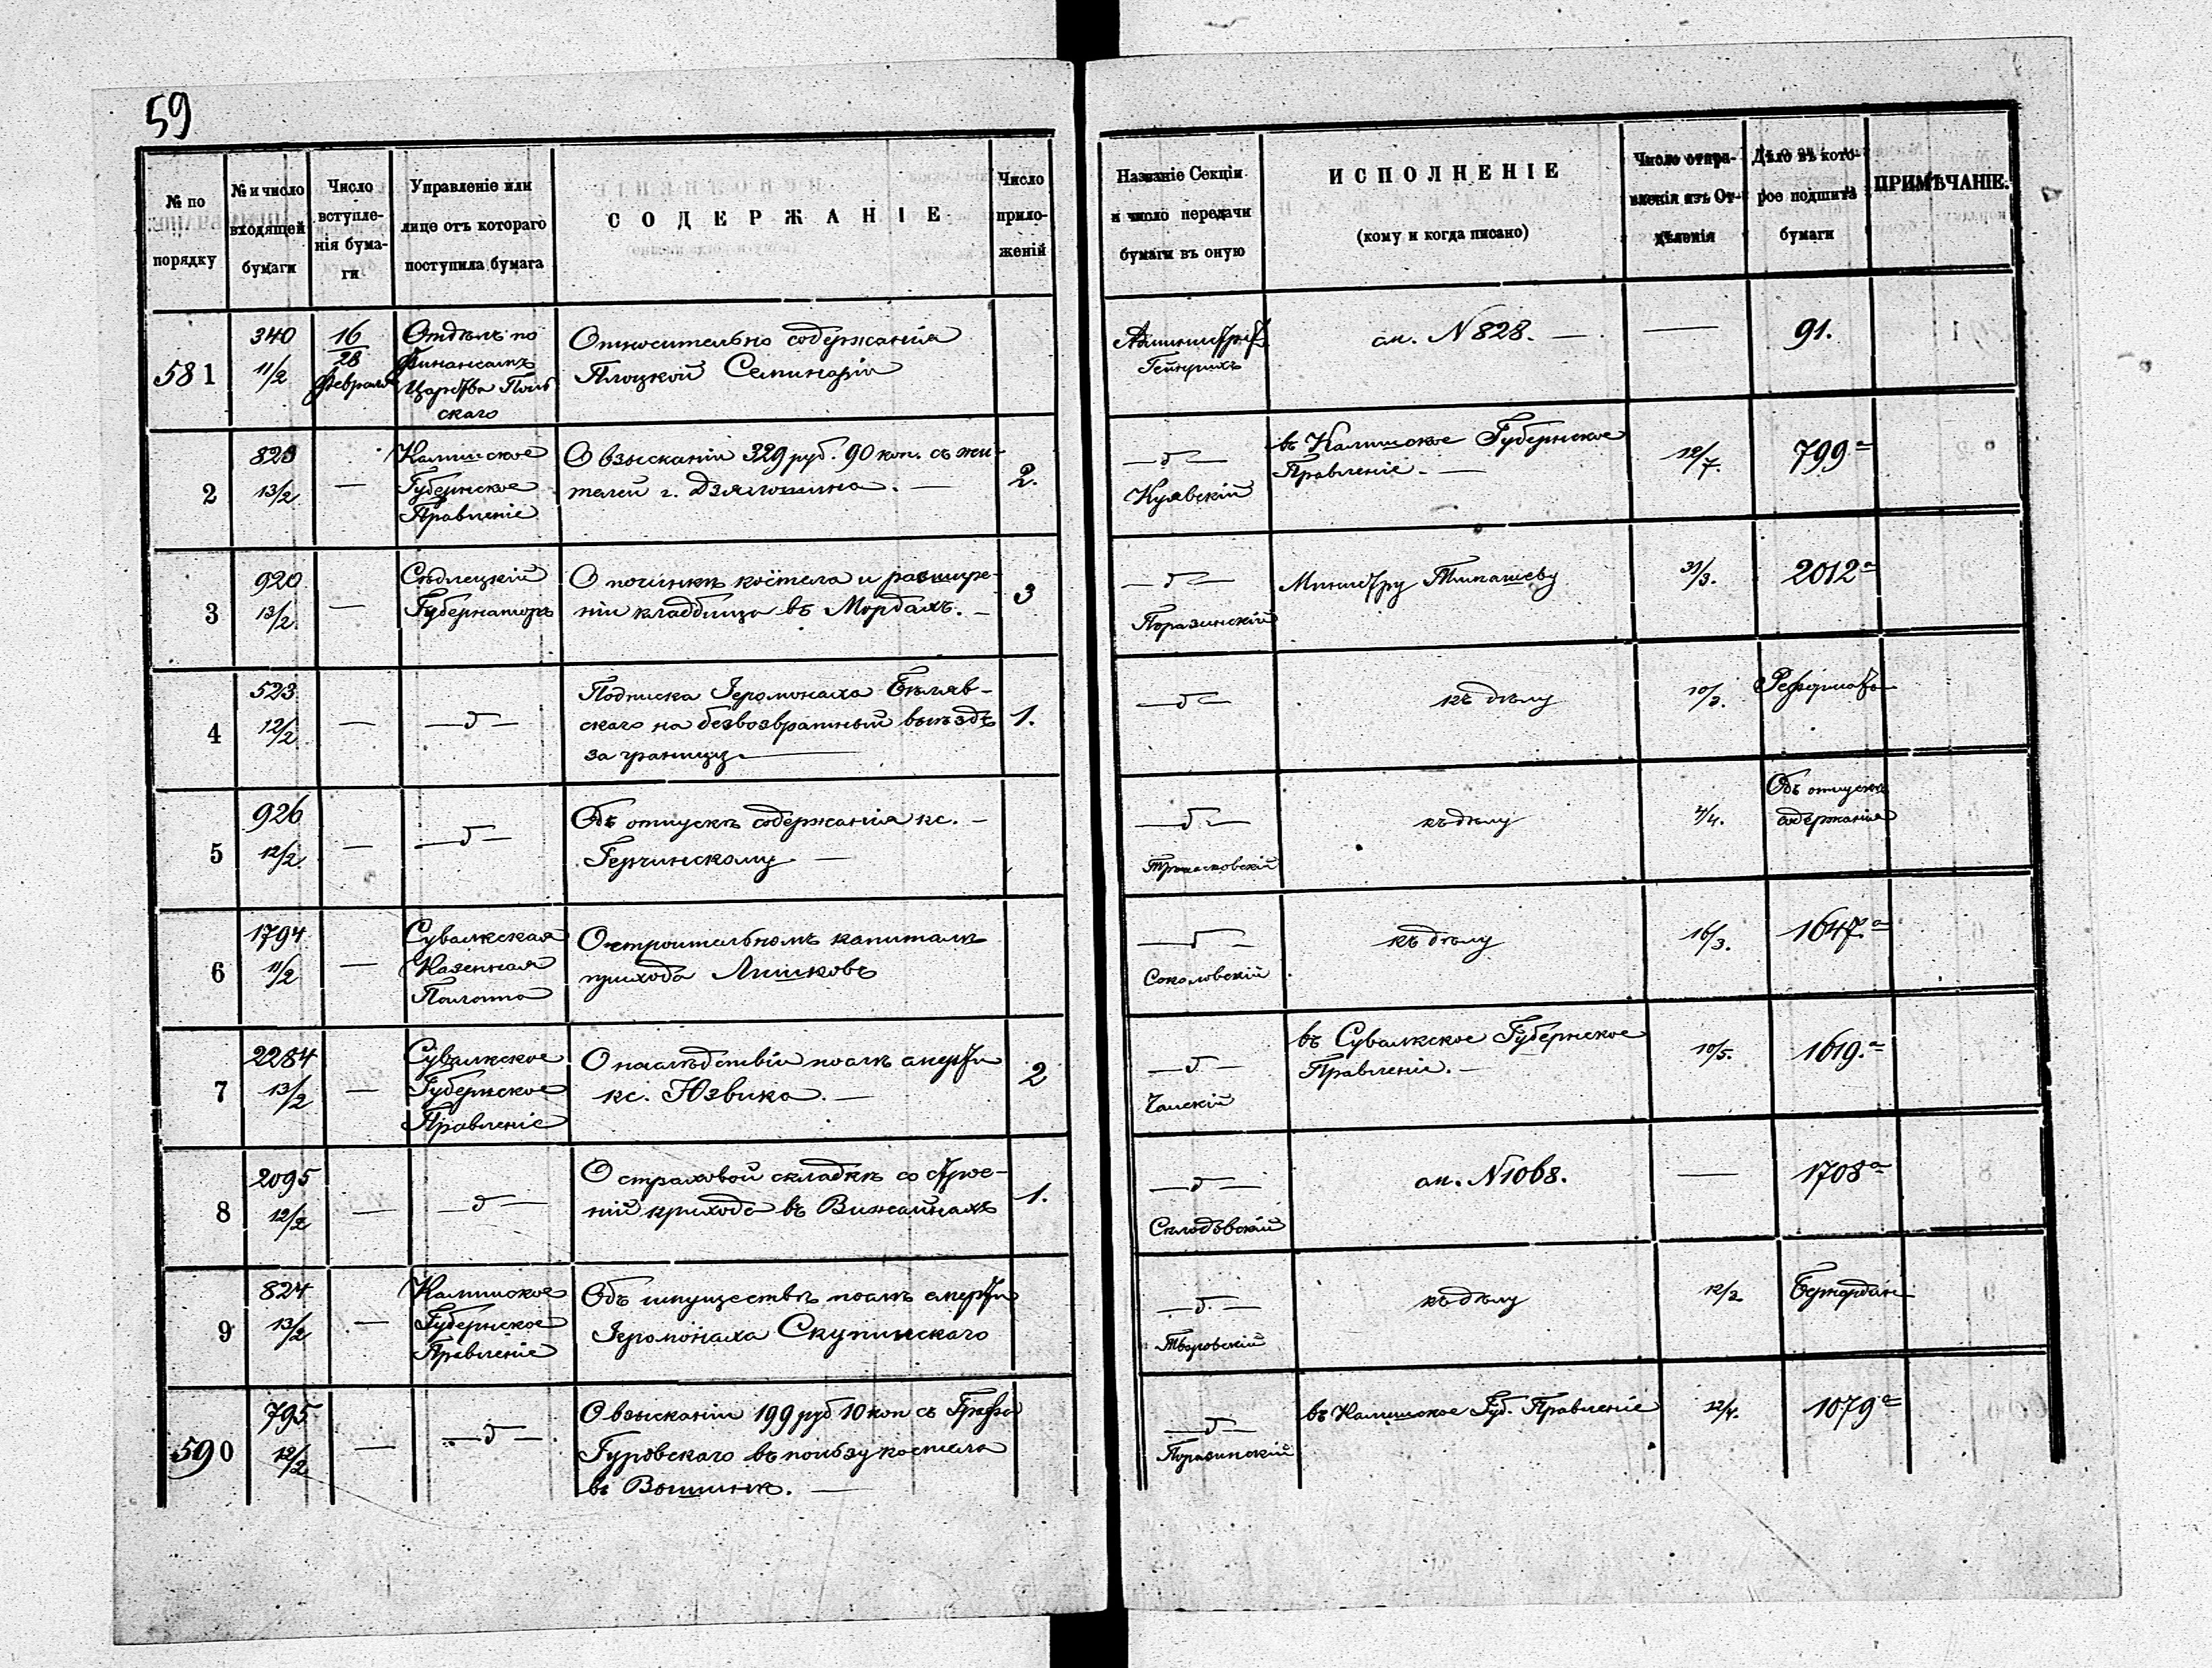 59
№ по порядку
№ и число входящей бумаги
Число вступленія бумаги
Управленіе или лице отъ котораго поступила бумага
СОДЕРЖАНІЕ
Число приложеній
Названіе Секціи и число передачи бумаги въ оную
ИСПОЛНЕНІЕ
(кому и когда писано)
Число отправленія изъ Отдѣленія
Дѣло въ которое подшита бумаги
ПРИМѢЧАНІЕ.
581
340
11/2
16/28
Февраля
Отдѣлъ по
Финансамъ
Царства Поль
скаго
Относительно содержанія
Плоцкой Семинаріи
сл. N 828. —
—
91.
2
823
13/2
—
Калишское
Губернское
Правленіе
О взысканіи 329 руб. 90 коп. съ жи-
телей г. Дзялошина. —
2.
— д —
Куявскій
въ Калишское Губернское
Правленіе. —
12/7.
799 а
3
920
13/2
—
Сѣдлецкій
Губернаторъ
О починкѣ костела и расшире-
ніи кладбища въ Мордахъ. —
3
— д —
Поразинскій
Министру Тимашеву
31/3.
2012 а
4
523
12/2
—
— д —
Подписка Іеромонаха Бѣляв-
скаго на безвозвратный выѣздъ
за границу —
1.
— д —
къ дѣлу
10/3.
5
926
12/2
—
— д —
Объ отпускѣ содержанія кс. —
Герчинскому. —
— д —
къ дѣлу
4/4.
Объ отпускѣ
содержанія
6
1794
11/2
—
Сувалкская
Казенная
Палата
О строительномъ капиталѣ
прихода Лишковъ
— д —
Соколовскій
къ дѣлу
16/3.
1647. а
7
2284
13/2
—
Сувалкское
Губернское
Правленіе
О наслѣдствіи послѣ смерти
кс. Юзвика. —
2
— д —
въ Сувалкское Губернское
Правленіе. —
10/5.
1619. а
8
2095
12/2
—
— д —
О страховой складкѣ со строе-
ній прихода въ Вижайнахъ
1.
— д —
Склодовскій
сл. N 1068.
—
1708 а
9
824
13/2
—
Калишское
Губернское
Правленіе
Объ имуществѣ послѣ смерти
Іеромонаха Скупинскаго
— д —
къ дѣлу
12/3
Бернардин
590
795
12/2
—
— д —
О взысканіи 199 руб 10 коп съ Графа
Гуровскаго въ пользу костела
— д —
Поразинскій
въ Калишское Губ. Правленіе
12/4.
1079 а